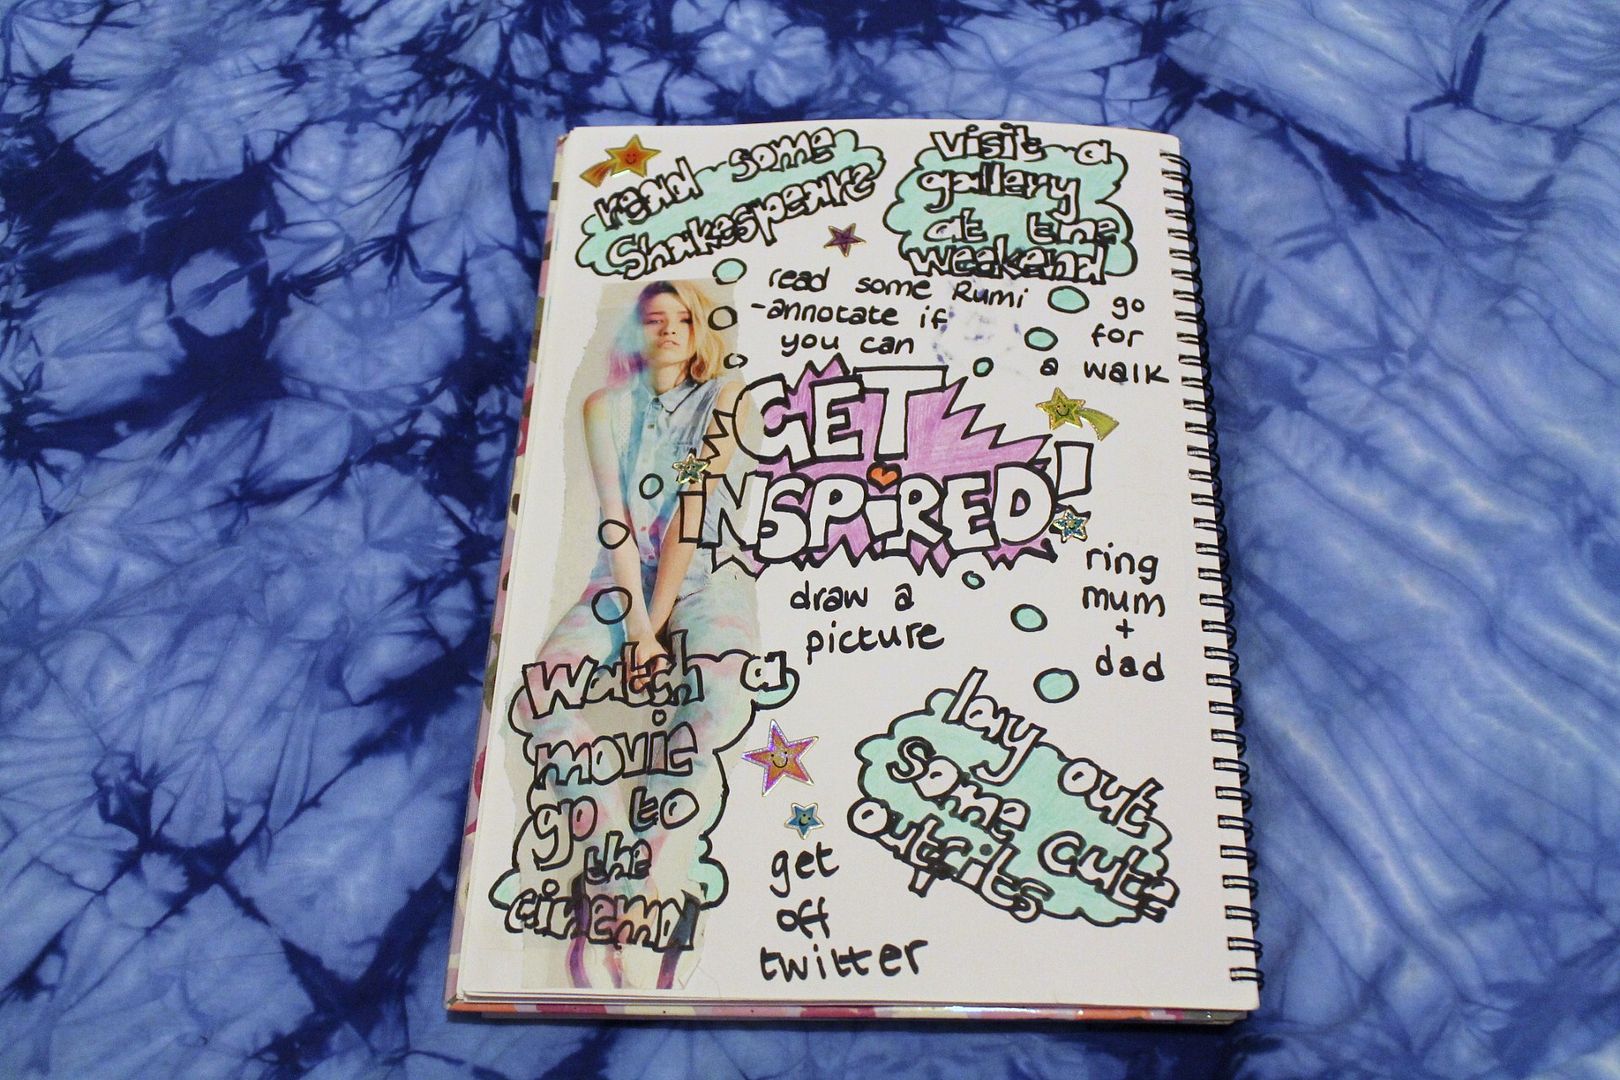 read some
Shakespeare
visit a
gallery
at the
weekend
read some Rumi
-annotate if
you can
go
for
a walk
GET
INSPiRED!
draw a
picture
ring
mum
+
dad
watch a
movie
go to
the
cinema
lay out
some cute
outfits
get
off
twitter